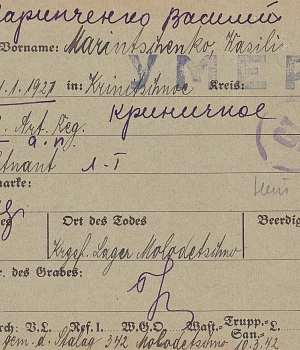 Маринченко Василий
Vorname: Marintschenko, Wasili
УМЕР
1.1.1921 in: Krinitschnoe Kreis:
Криничное
Art. Reg.
а.п.
Leutnant Л-т
marke:
Nein
Ort des Todes Beerdig
Krgef. Lager Molodetschno
r. des Grabes:
rch: V.L. Ref. I. W.G.O. Wast.- Trupp.- L.
San.-
gem. d. Stalag 342 Molodetschno 10.3.42